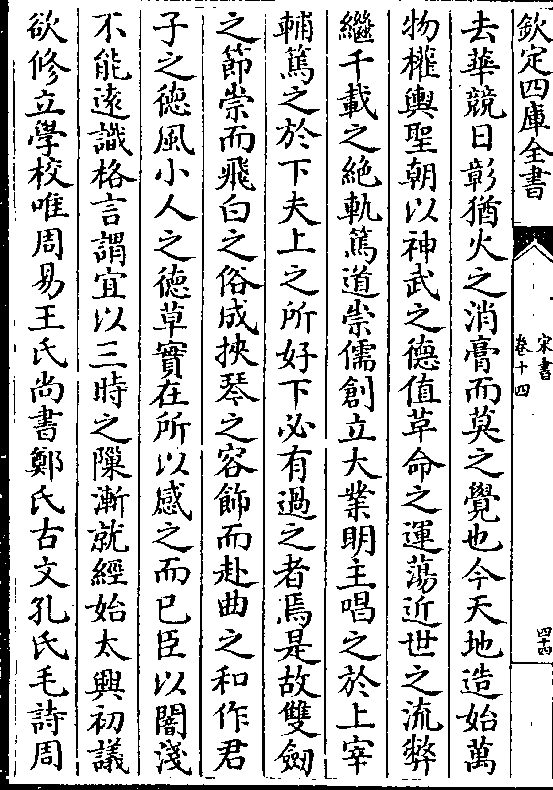 欽定四庫全書
宋書
卷十四
四十四
去華競日彰猶火之消膏而莫之覺也今天地造始萬
物權輿聖朝以神武之德值革命之運蕩近世之流弊
繼千載之絶軌篤道崇儒創立大業明主唱之於上宰
輔篤之於下夫上之所好下必有過之者焉是故雙劒
之節崇而飛白之俗成挾琴之容飾而赴曲之和作君
子之徳風小人之徳草實在所以感之而已臣以闇淺
不能逺識格言謂宜以三時之隟漸就經始太興初議
欲修立學校唯周易王氏尚書鄭氏古文孔氏毛詩周